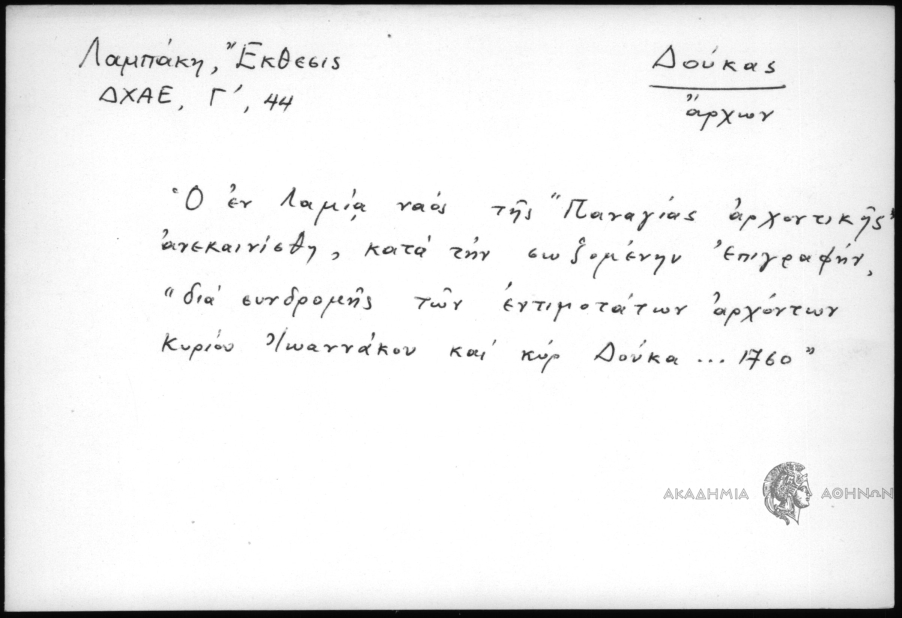 Λαμπάκη, Ἔκθεσις
ΔΧΑΕ, Γ', 44
Δούκας
ἄρχων
Ὁ ἐν Λαμίᾳ ναός τῆς "Παναγίας ἀρχοντικῆς"
ἀνεκαινίσθη, κατά τήν σωζομένην ἐπιγραφήν,
"διά συνδρομῆς τῶν ἐντιμοτάτων ἀρχόντων
Κυρίου Ἰωαννάκου καί κύρ Δούκα ... 1760"
ΑΚΑΔΗΜΙΑ ΑΘΗΝΩΝ